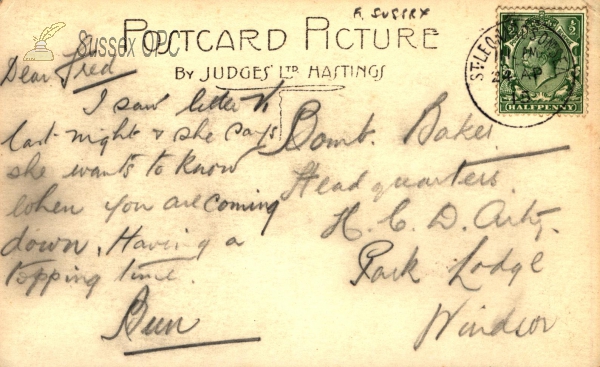 E. SUSSEX
POSTCARD PICTURE
Sussex OPC
BY JUDGES' LTD HASTINGS
Dear Fred
I saw letter
last night & she says
she wants to know
when you are coming
down. Having a
topping time.
Bun
Bomb. Baker.
Headquarters.
H. C. D. Arty.
Park Lodge
Windsor
ST LEONARDS ON
AP
HALFPENNY